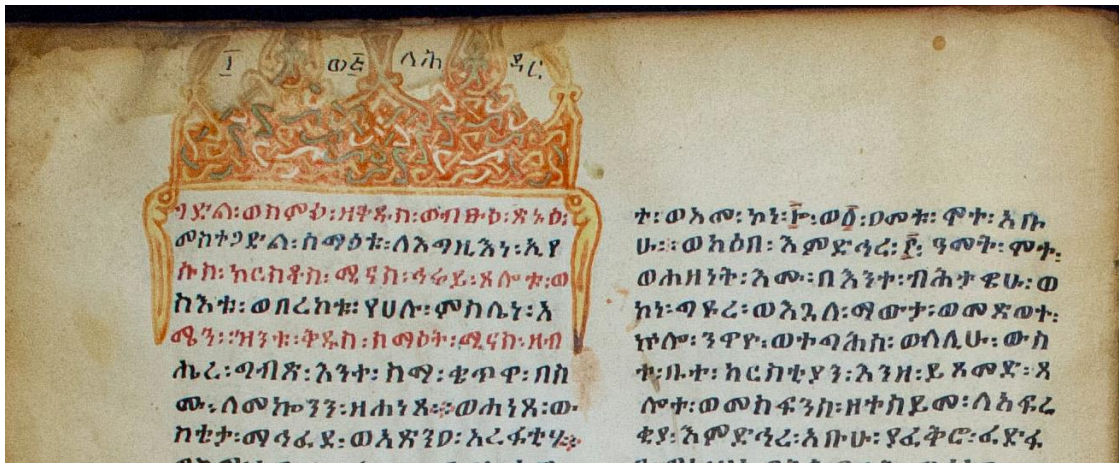 ፲ ወ፭ ለሕ ዳር
ገድል፡ወስምዕ፡ዘቅዱስ፡ወብፁዕ፡ጽኑዕ፡
መስተጋድል፡ስማዕቱ፡ለእግዚእነ፡ኢየ
ሱስ፡ክርስቶስ፡ሚናስ፡ኅሩይ፡ጸሎቱ፡ወ
ስእቱ፡ወበረከቱ፡የሀሉ፡ምስሌነ፡አ
ሜን፡ዝንቱ፡ቅዱስ፡ሰማዕት፡ሚናስ፡ዘብ
ሔረ፡ግብጽ፡እንተ፡ስማ፡ቂጥዋ፡በስ
ሙ፡ለመኰንን፡ዘሐነጸ፡ወሐነጸ፡ው
ስቴታ፡ማኅፈደ፡ወአጽንዐ፡አረፋቲሃ፡
ት፡ወአመ፡ኮነ፡፲፡ወ፩፡ዐመቱ፡ሞተ፡አቡ
ሁ፡ወካዕበ፡እምድኅረ፡፫፡ዓመት፡ሞተ፡
ወሐዘነት፡እሙ፡በእንተ፡ብሕታዌሁ፡ወ
ኮነ፡ግዩረ፡ወእጓለ፡ማውታ፡ወመጽወተ፡
ኵሎ፡ንዋዮ፡ወተግሕሰ፡ወሊሁ፡ውስ
ተ፡ቤተ፡ክርስቲያን፡እንዘ፡ይጸመድ፡ጸ
ሎተ፡ወመስፍንሰ፡ዘተሰይመ፡ለአፍረ
ቂያ፡እምድኅረ፡አቡሁ፡ያፈቅሮ፡ፈድፋ